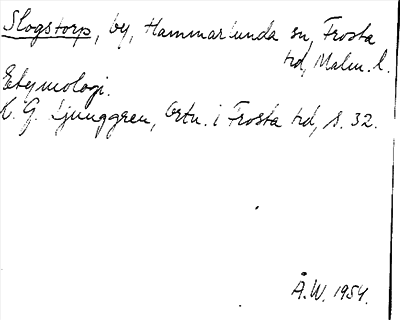 Slogstorp, by, Hammarlunda sn, Frosta
hd, Malm. l.
Etymologi.
K. G. Ljunggren, Ortn. i Frosta hd, s. 32.
Å.W. 1954.